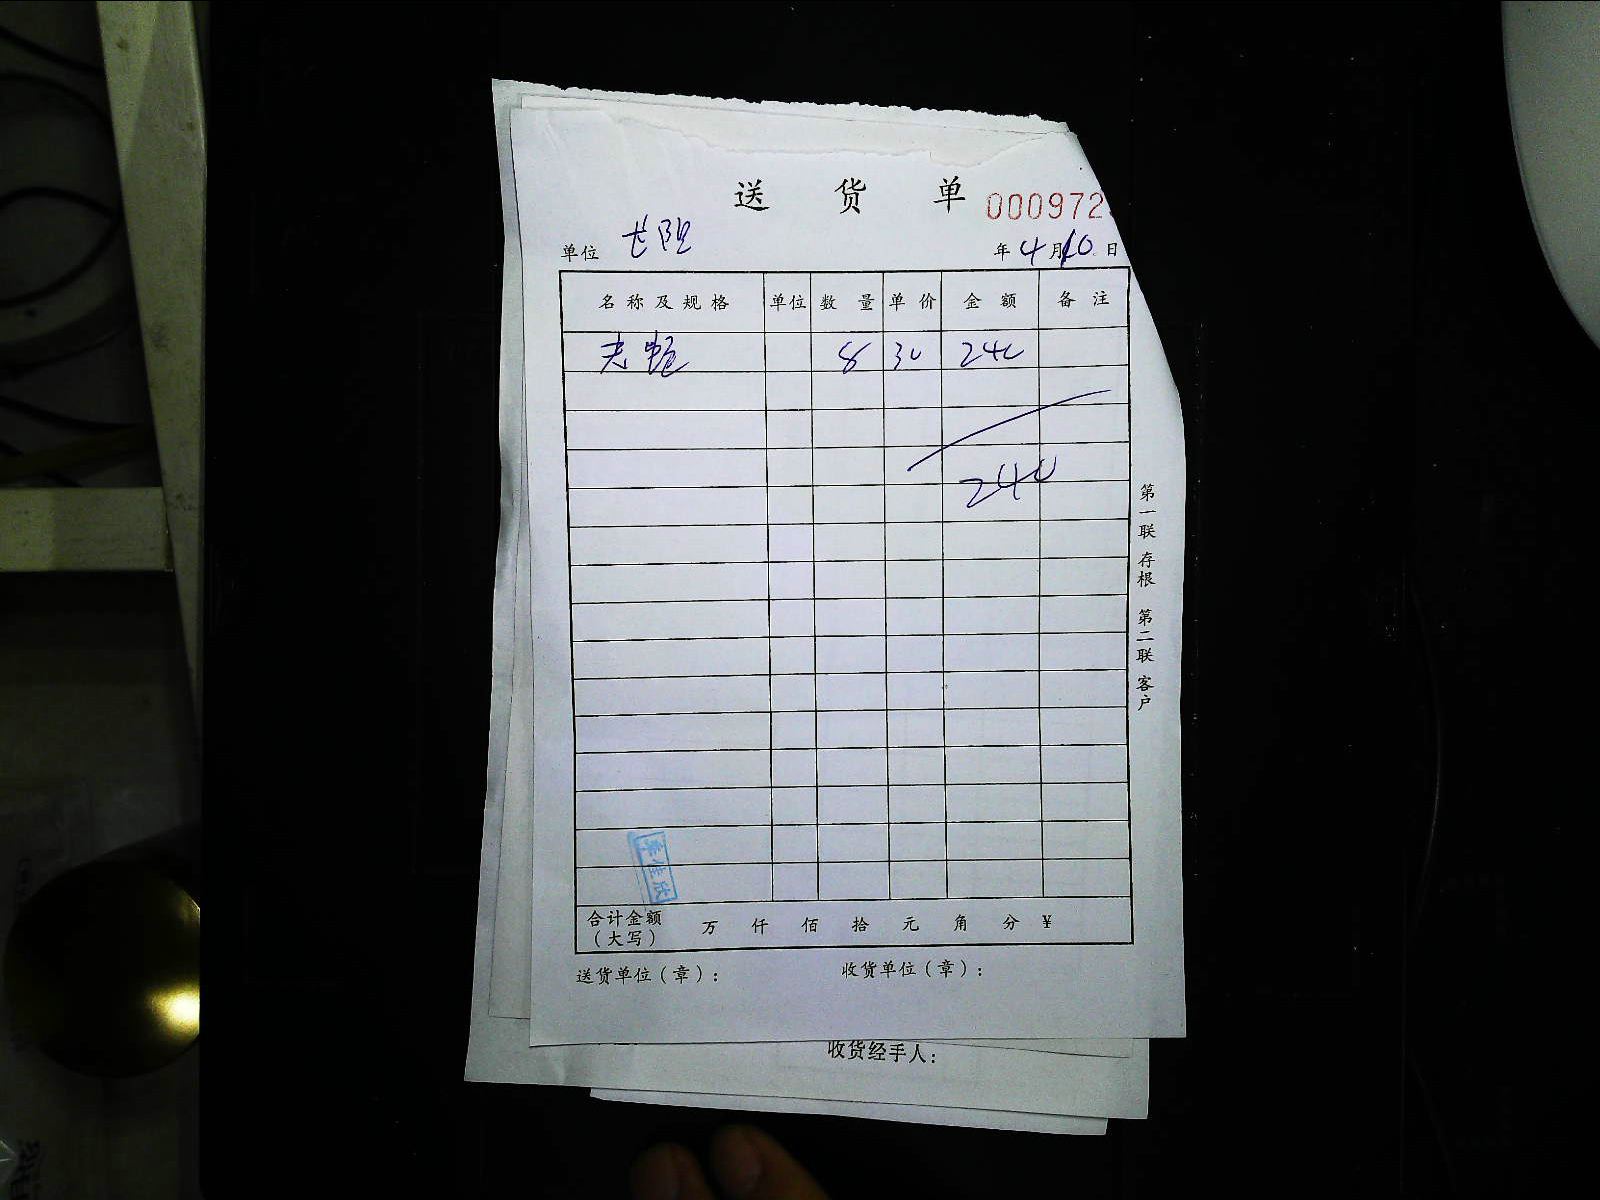 送 货 单 000972
单位 长阳 年 4 月 10 日
名称及规格 单位 数量 单价 金额 备注
8 30 240
240
第一联 存根 第二联 客户
李佳欣
合计金额（大写） 万 仟 佰 拾 元 角 分 ¥
送货单位（章）： 收货单位（章）：
收货经手人：